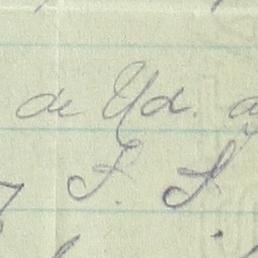 de Ud. a
S. S.